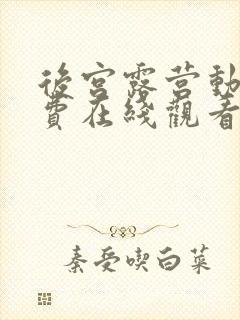 後宮露营動
費在綫觀看
秦受喫白菜